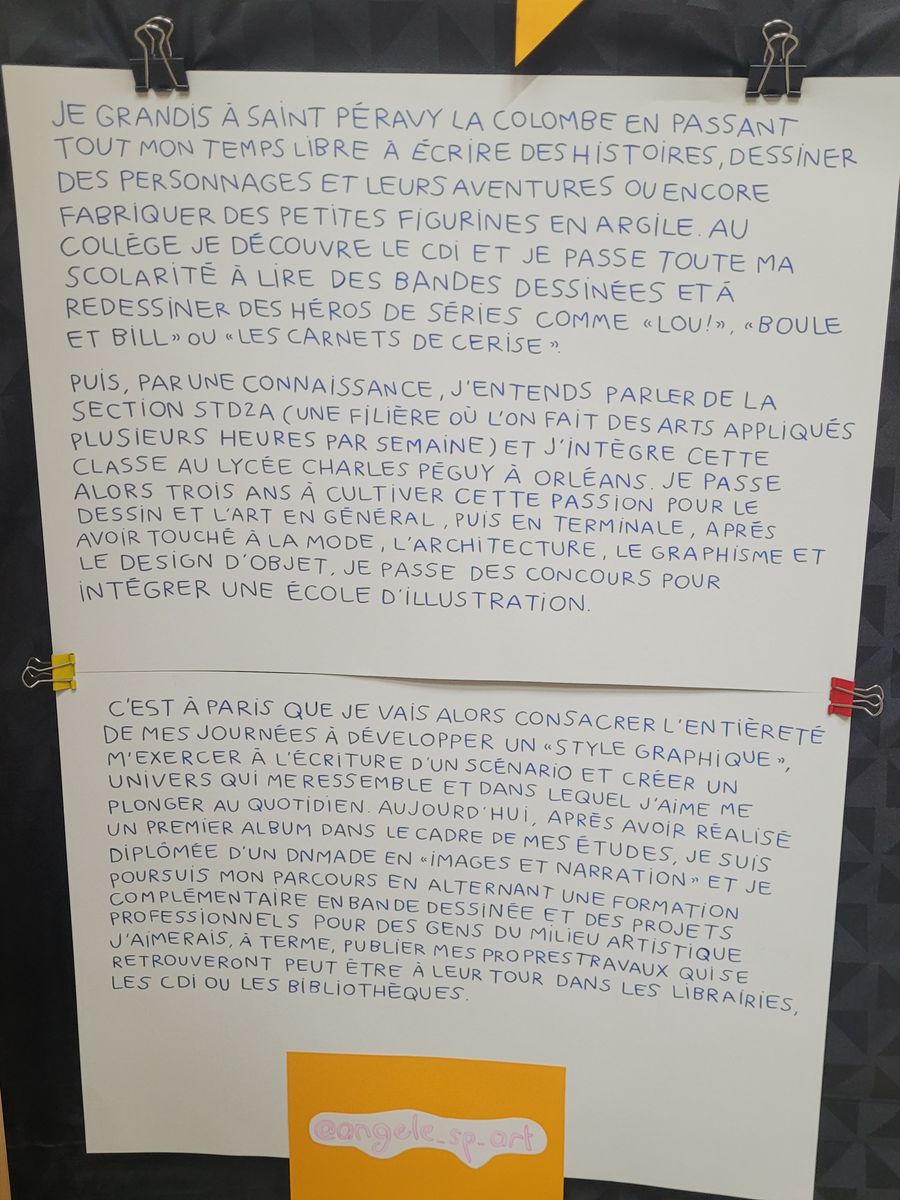 JE GRANDIS À SAINT PÉRAVY LA COLOMBE EN PASSANT
TOUT MON TEMPS LIBRE À ÉCRIRE DES HISTOIRES, DESSINER
DES PERSONNAGES ET LEURS AVENTURES OU ENCORE
FABRIQUER DES PETITES FIGURINES EN ARGILE. AU
COLLÈGE JE DÉCOUVRE LE CDI ET JE PASSE TOUTE MA
SCOLARITÉ À LIRE DES BANDES DESSINÉES ET À
REDESSINER DES HÉROS DE SÉRIES COMME «LOU!», «BOULE
ET BILL» OU «LES CARNETS DE CERISE».
PUIS, PAR UNE CONNAISSANCE, J'ENTENDS PARLER DE LA
SECTION STD2A (UNE FILIÈRE OÙ L'ON FAIT DES ARTS APPLIQUÉS
PLUSIEURS HEURES PAR SEMAINE) ET J'INTÈGRE CETTE
CLASSE AU LYCÉE CHARLES PÉGUY À ORLÉANS. JE PASSE
ALORS TROIS ANS À CULTIVER CETTE PASSION POUR LE
DESSIN ET L'ART EN GÉNÉRAL, PUIS EN TERMINALE, APRÈS
AVOIR TOUCHÉ À LA MODE, L'ARCHITECTURE, LE GRAPHISME ET
LE DESIGN D'OBJET, JE PASSE DES CONCOURS POUR
INTÉGRER UNE ÉCOLE D'ILLUSTRATION.
C'EST À PARIS QUE JE VAIS ALORS CONSACRER L'ENTIÈRETÉ
DE MES JOURNÉES À DÉVELOPPER UN «STYLE GRAPHIQUE»,
M'EXERCER À L'ÉCRITURE D'UN SCÉNARIO ET CRÉER UN
UNIVERS QUI ME RESSEMBLE ET DANS LEQUEL J'AIME ME
PLONGER AU QUOTIDIEN. AUJOURD'HUI, APRÈS AVOIR RÉALISÉ
UN PREMIER ALBUM DANS LE CADRE DE MES ÉTUDES, JE SUIS
DIPLÔMÉE D'UN DNMADE EN «IMAGES ET NARRATION» ET JE
POURSUIS MON PARCOURS EN ALTERNANT UNE FORMATION
COMPLÉMENTAIRE EN BANDE DESSINÉE ET DES PROJETS
PROFESSIONNELS POUR DES GENS DU MILIEU ARTISTIQUE
J'AIMERAIS, À TERME, PUBLIER MES PROPRES TRAVAUX QUI SE
RETROUVERONT PEUT ÊTRE À LEUR TOUR DANS LES LIBRAIRIES,
LES CDI OU LES BIBLIOTHÈQUES.
@angele_sp_art